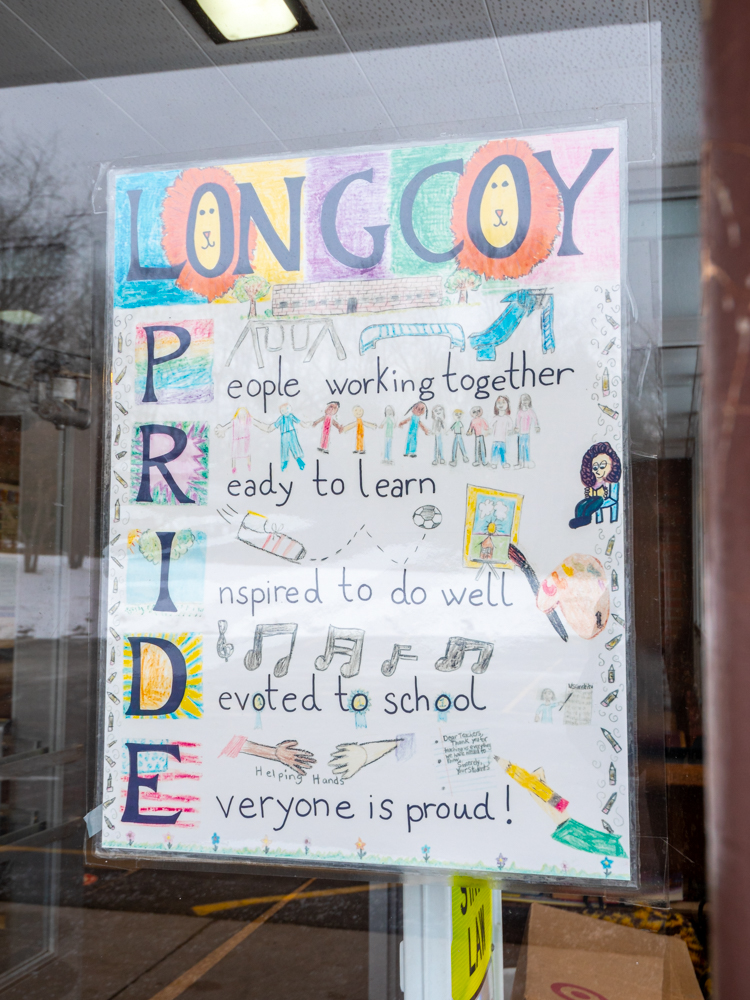 LONGCOY
People working together
Ready to learn
Inspired to do well
Devoted to school
Helping Hands
Dear Teachers,
Thank you for
Sincerely,
Your Students
Everyone is proud!
LAW